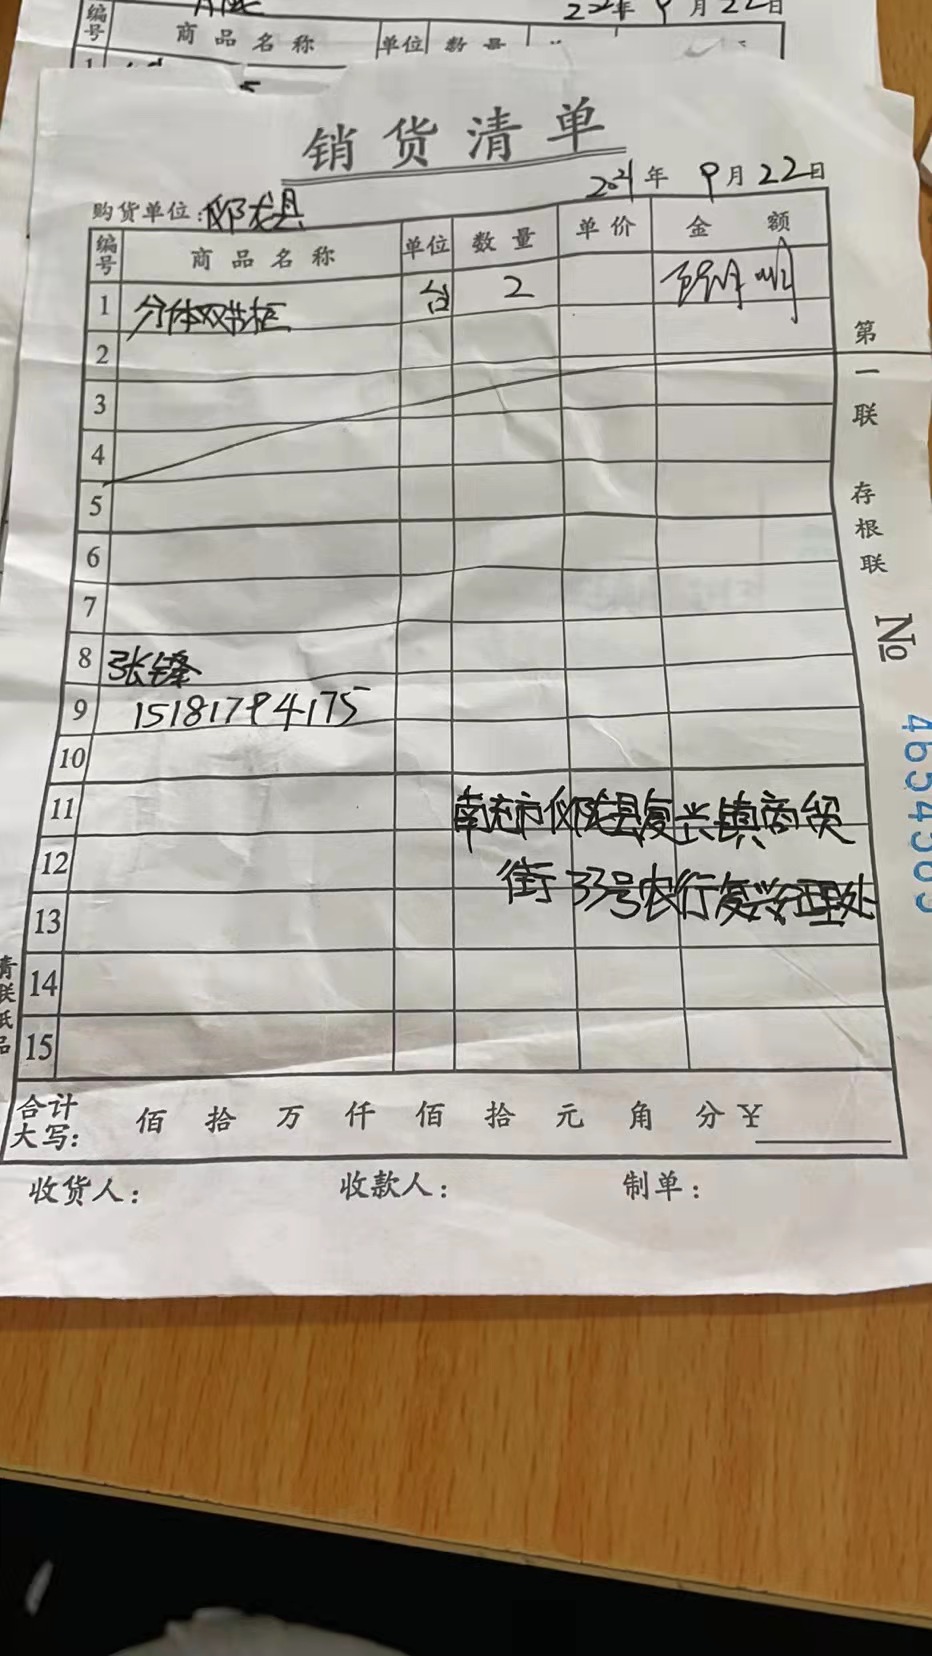 编号 商品名称 单位 数量
年9月22日
销货清单
2021年 9月22日
购货单位:仪陇县
编号 商品名称 单位 数量 单价 金额
1 分体双节柜 台 2
2
3
4
5
6
7
8 张锋
9 15181794175
10
11 南充市仪陇县复兴镇商贸
12 街33号农行复兴分理处
13
14
15
合计大写: 佰 拾 万 仟 佰 拾 元 角 分 ¥
收货人: 收款人: 制单:
第一联 存根联
№ 4654565